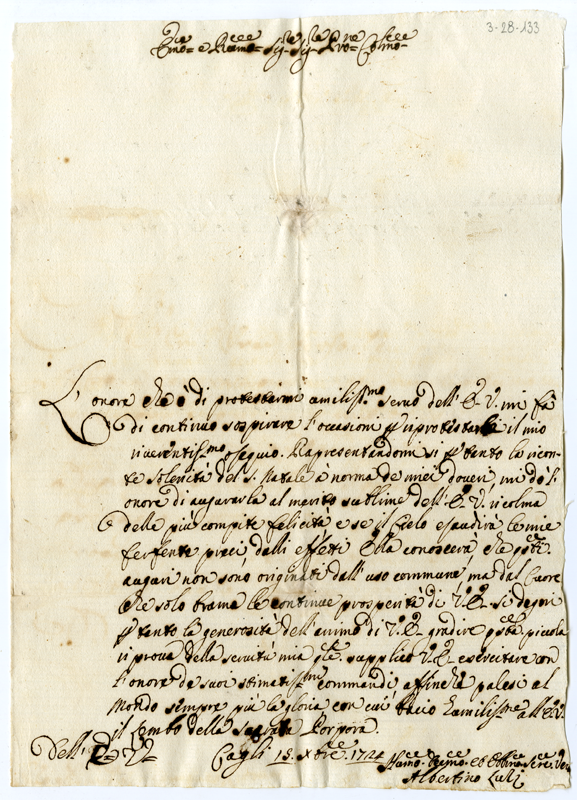 3-28-133
Em.o e Reu.mo Sig.r Sig.r Pro.ne Colmo
L'onore che ò di protestarmi umiliss.mo seruo dell'E.V. mi fà
di continuo sospirare l'occasioni p riprotestarle il mio
riuerentiss.mo ossequio. Rapresentandomisi p tanto la ricoren
te solenità del S. Natale à norma de miei doueri, mi dò l'
onore di augurarla al merito sublime dell'E.V. ricolma
delle più compite felicità e se il Cielo esaudirà le mie
feruente preci dalli effetti Ella conoscerà che qsti
auguri non sono originati dall'uso commune ma dal Cuore
che solo brama le continue prosperità di V.E. si degni
p tanto la generosità dell'animo di V.E. gradire qsta piccola
riproua della seruitù mia, e supplico V.E. esercitare con
l'onore de suoi stimatiss.mi commandi affinche palesi al
Mondo sempre più la gloria con cui bacio humiliss.te all'E.V.
il Lembo della Sagrata Porpora.
Dell'E.V.
Cagli 15. Xbre. 1724
Humo. Deuo. et Obbmo Sere. Vero
Albertino Luli